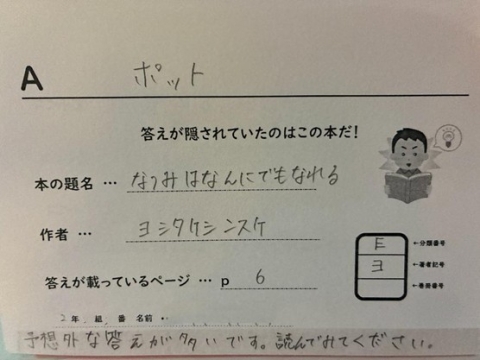 A ポット
答えが隠されていたのはこの本だ!
本の題名 … なつみはなんにでもなれる
作者 … ヨシタケシンスケ
答えが載っているページ … p 6
E ←分類番号
ヨ ←著者記号
←巻冊番号
2年 組 番 名前・
予想外な答えが多いです。読んでみてください。